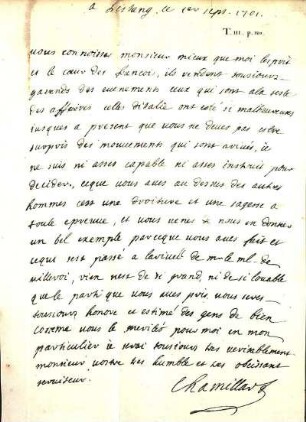 a l'estang, ce 1er sept. 1701.
T. III. p. 110.
vous connoisses monsieur mieux que moi lesprit
et le cœur des francois, ils rendent tousiours
garends des evenements ceux qui sont a la teste
des affaires elles ditalie ont esté si malheureuses
jusques a present que vous ne deves pas estre
surpris des mouvements qui sont arrivés, ie
ne suis ni asses capable ni asses instruit pour
decider, ce que vous aves au dessus des autres
hommes cest une droiture et une sagesse a
toute epreuve, et vous venes d en donner
un bel exemple par ce que vous aves fait et
ce qui sest passé a larivée de m. le ml. de
villeroi, rien nest de si grand, ni de si louable
que le parti que vous aves pris, vous seres
tousiours honoré et estimé des gens de bien
comme vous le merités pour moi en mon
particulier ie serai tousiours tres veritablement
monsieur vostre tres humble et tres obeissant
serviteur.
Chamillart